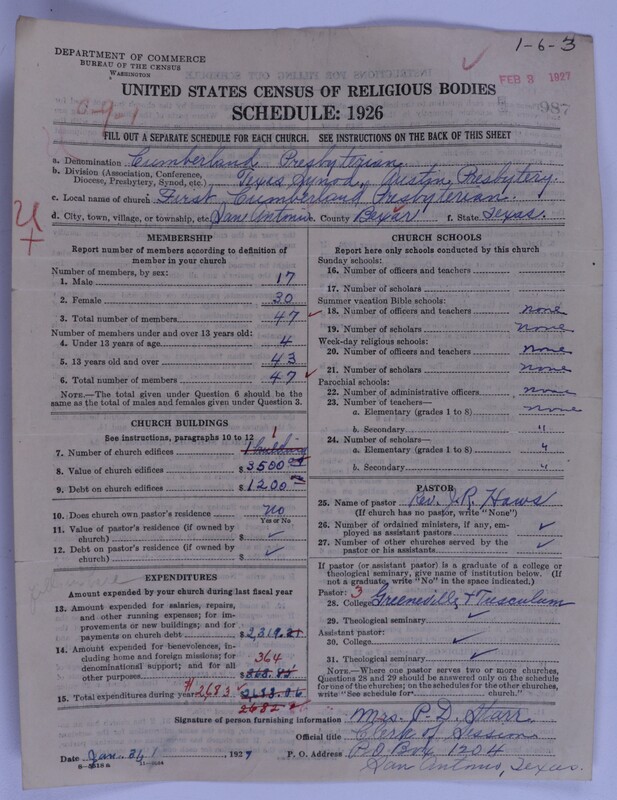 1-6-3
DEPARTMENT OF COMMERCE
BUREAU OF THE CENSUS
WASHINGTON
FEB 3 1927
UNITED STATES CENSUS OF RELIGIOUS BODIES
SCHEDULE: 1926
987
FILL OUT A SEPARATE SCHEDULE FOR EACH CHURCH. SEE INSTRUCTIONS ON THE BACK OF THIS SHEET
a. Denomination Cumberland Presbyterian
b. Division (Association, Conference, Diocese, Presbytery, Synod, etc.) Texas Synod, Austin Presbytery
c. Local name of church First Cumberland Presbyterian
d. City, town, village, or township, etc. San Antonio County Bexar f. State Texas.
MEMBERSHIP
Report number of members according to definition of
member in your church
Number of members, by sex:
1. Male 17
2. Female 30
3. Total number of members 47
Number of members under and over 13 years old:
4. Under 13 years of age 4
5. 13 years old and over 43
6. Total number of members 47
NOTE.—The total given under Question 6 should be
the same as the total of males and females given under Question 3.
CHURCH BUILDINGS
See instructions, paragraphs 10 to 12
7. Number of church edifices 1 building 1
8. Value of church edifices $ 3500.00
9. Debt on church edifices $ 1200.00
10. Does church own pastor's residence no
Yes or No
11. Value of pastor's residence (if owned by
church) $ ✓
12. Debt on pastor's residence (if owned by
church) $ ✓
EXPENDITURES
Amount expended by your church during last fiscal year
13. Amount expended for salaries, repairs,
and other running expenses; for im-
provements or new buildings; and for
payments on church debt $ 2,319.21
14. Amount expended for benevolences, in-
cluding home and foreign missions; for
denominational support; and for all
other purposes 364 $ 363.85
15. Total expenditures during year # 2683
CHURCH SCHOOLS
Report here only schools conducted by this church
Sunday schools:
16. Number of officers and teachers
17. Number of scholars
Summer vacation Bible schools:
18. Number of officers and teachers none
19. Number of scholars none
Week-day religious schools:
20. Number of officers and teachers none
21. Number of scholars none
Parochial schools:
22. Number of administrative officers none
23. Number of teachers—
a. Elementary (grades 1 to 8) none
b. Secondary "
24. Number of scholars—
a. Elementary (grades 1 to 8) "
b. Secondary "
PASTOR
25. Name of pastor Rev. J. R. Haws
(If church has no pastor, write "None")
26. Number of ordained ministers, if any, em-
ployed as assistant pastors ✓
27. Number of other churches served by the
pastor or his assistants ✓
If pastor (or assistant pastor) is a graduate of a college or
theological seminary, give name of institution below. (If
not a graduate, write "No" in the space indicated.)
Pastor: 3
28. College Greeneville & Tusculum
29. Theological seminary ✓
Assistant pastor:
30. College ✓
31. Theological seminary ✓
NOTE.—Where one pastor serves two or more churches,
Questions 28 and 29 should be answered only on the schedule
for one of the churches; on the schedules for the other churches,
write "See schedule for church."
Signature of person furnishing information Mrs. P. D. Starr
Official title Clerk of Session
Date Jan. 31, 1927 P. O. Address P O Box 1204
8-5518 a 11-9584 San Antonio, Texas.